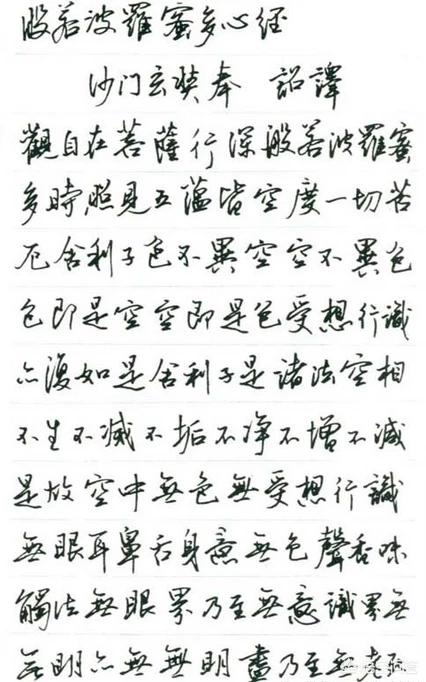 般若波羅蜜多心經
沙门玄奘奉 詔譯
觀自在菩薩行深般若波羅蜜
多時照見五蘊皆空度一切苦
厄舍利子色不異空空不異色
色即是空空即是色受想行識
亦復如是舍利子是諸法空相
不生不滅不垢不净不增不減
是故空中無色無受想行識
無眼耳鼻舌身意無色聲香味
觸法無眼界乃至無意識界無
無明亦無無明盡乃至無老